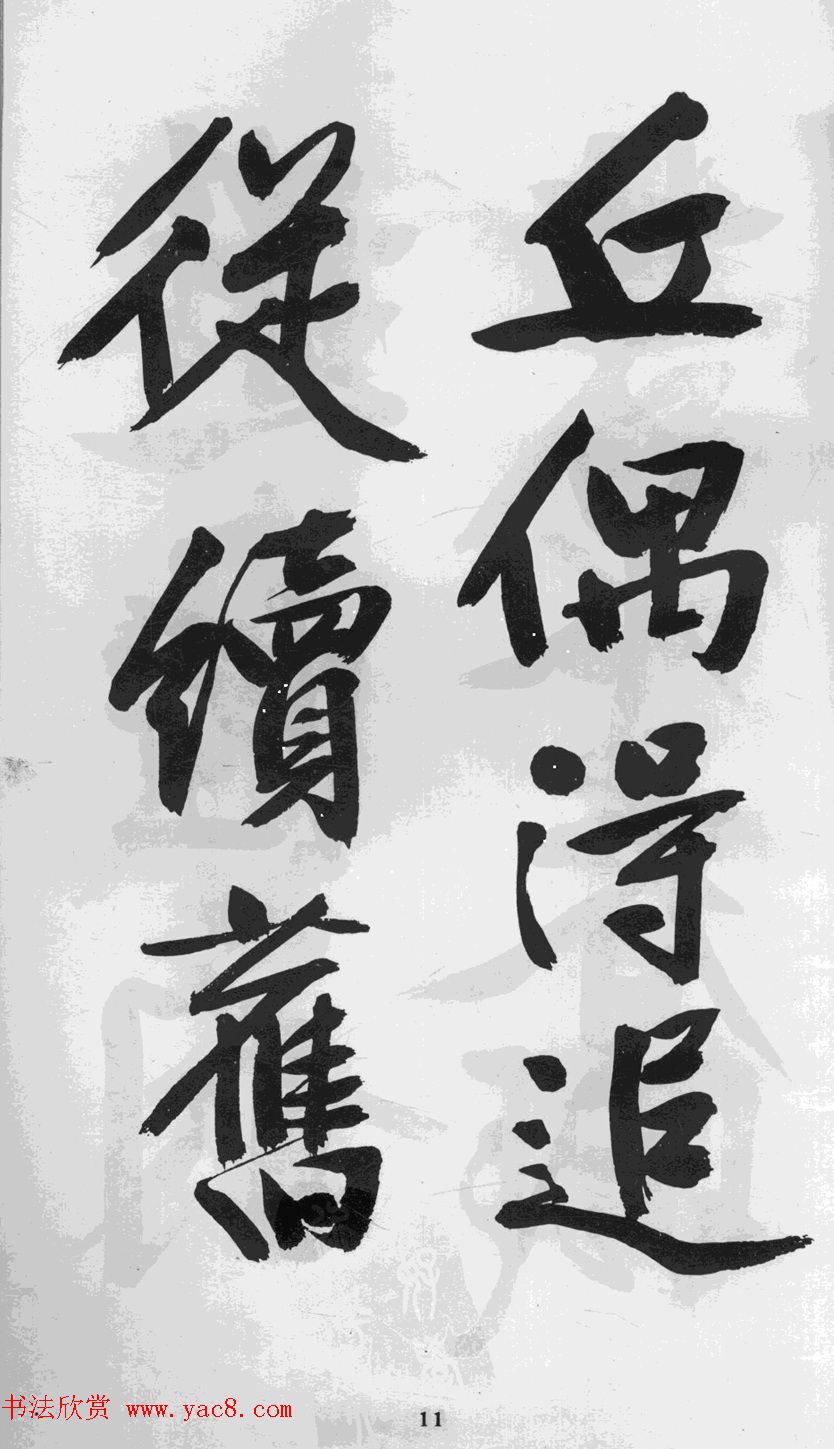 丘偶得追
從續舊
书法欣赏 www.yac8.com
11